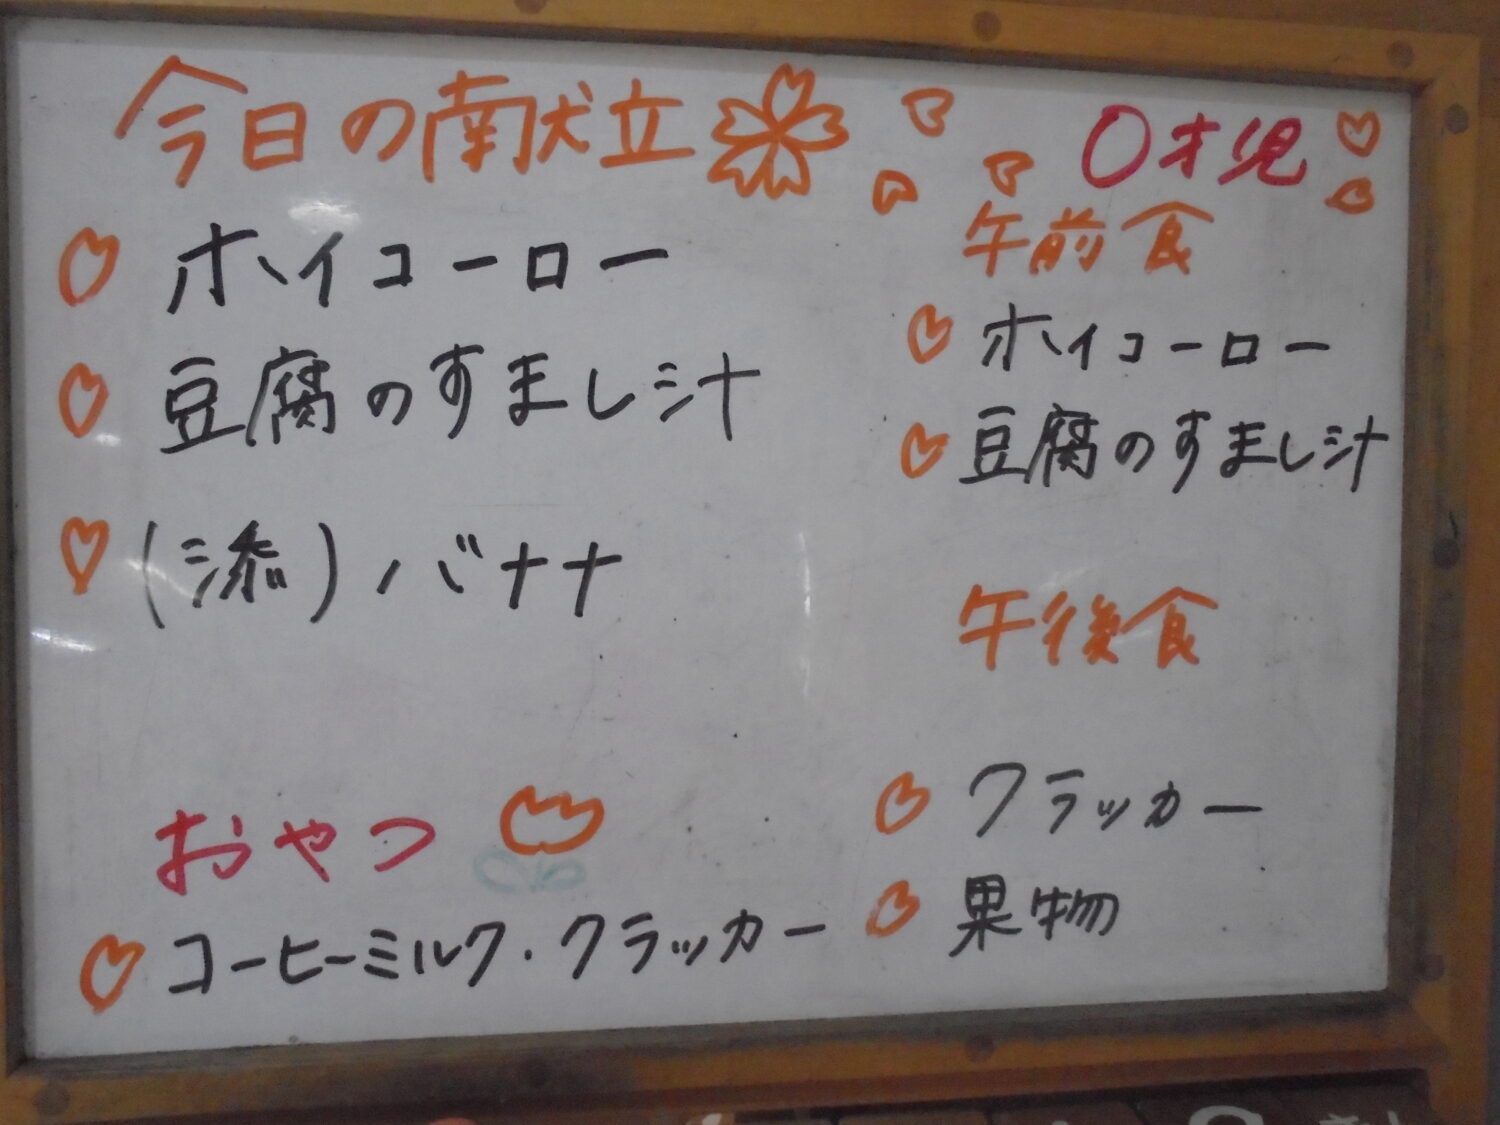 今日の献立
ホイコーロー
豆腐のすまし汁
(添)バナナ
おやつ
コーヒーミルク・クラッカー
0才児
午前食
ホイコーロー
豆腐のすまし汁
午後食
クラッカー
果物